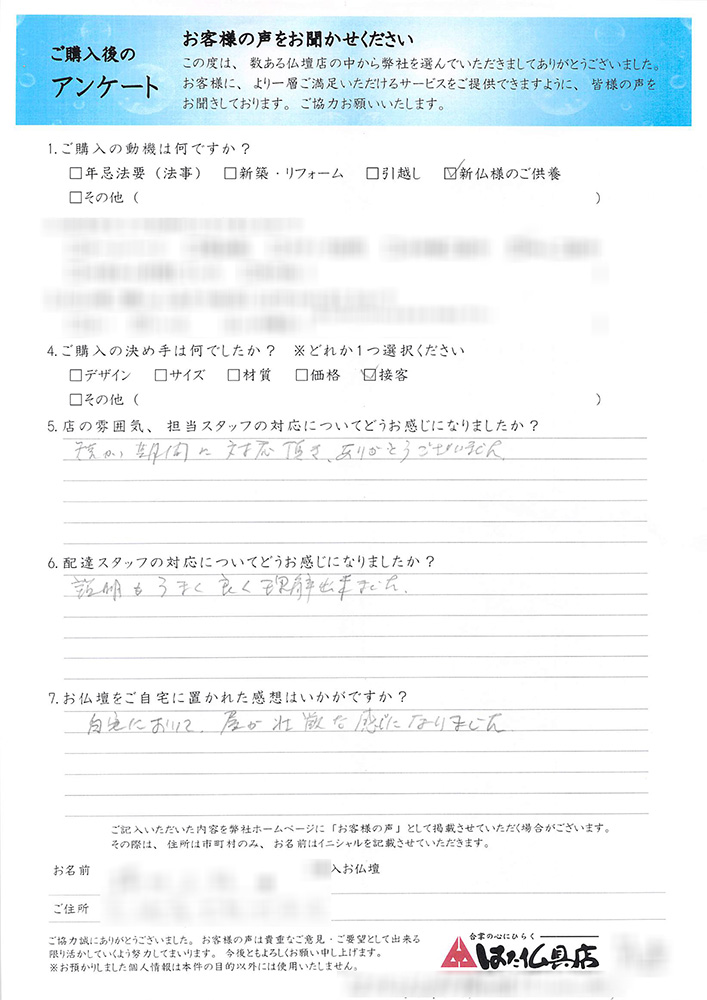 ご購入後の
アンケート
お客様の声をお聞かせください
この度は、数ある仏壇店の中から弊社を選んでいただきましてありがとうございました。
お客様に、より一層ご満足いただけるサービスをご提供できますように、皆様の声を
お聞きしております。ご協力お願いいたします。
1.ご購入の動機は何ですか？
□年忌法要（法事） □新築・リフォーム □引越し ☑新仏様のご供養
□その他（ ）
4.ご購入の決め手は何でしたか？ ※どれか1つ選択ください
□デザイン □サイズ □材質 □価格 ☑接客
□その他（ ）
5.店の雰囲気、担当スタッフの対応についてどうお感じになりましたか？
対応頂き、ありがとうございました
6.配達スタッフの対応についてどうお感じになりましたか？
説明もうまく良く理解出来ました。
7.お仏壇をご自宅に置かれた感想はいかがですか？
自宅において、 な感じになりました
ご記入いただいた内容を弊社ホームページに「お客様の声」として掲載させていただく場合がございます。
その際は、住所は市町村のみ、お名前はイニシャルを記載させていただきます。
お名前 入お仏壇
ご住所
ご協力誠にありがとうございました。お客様の声は貴重なご意見・ご要望として出来る
限り活かしていくよう努力してまいります。今後ともよろしくお願い申し上げます。
※お預かりしました個人情報は本件の目的以外には使用いたしません。
合掌の心にひらく
はた仏具店